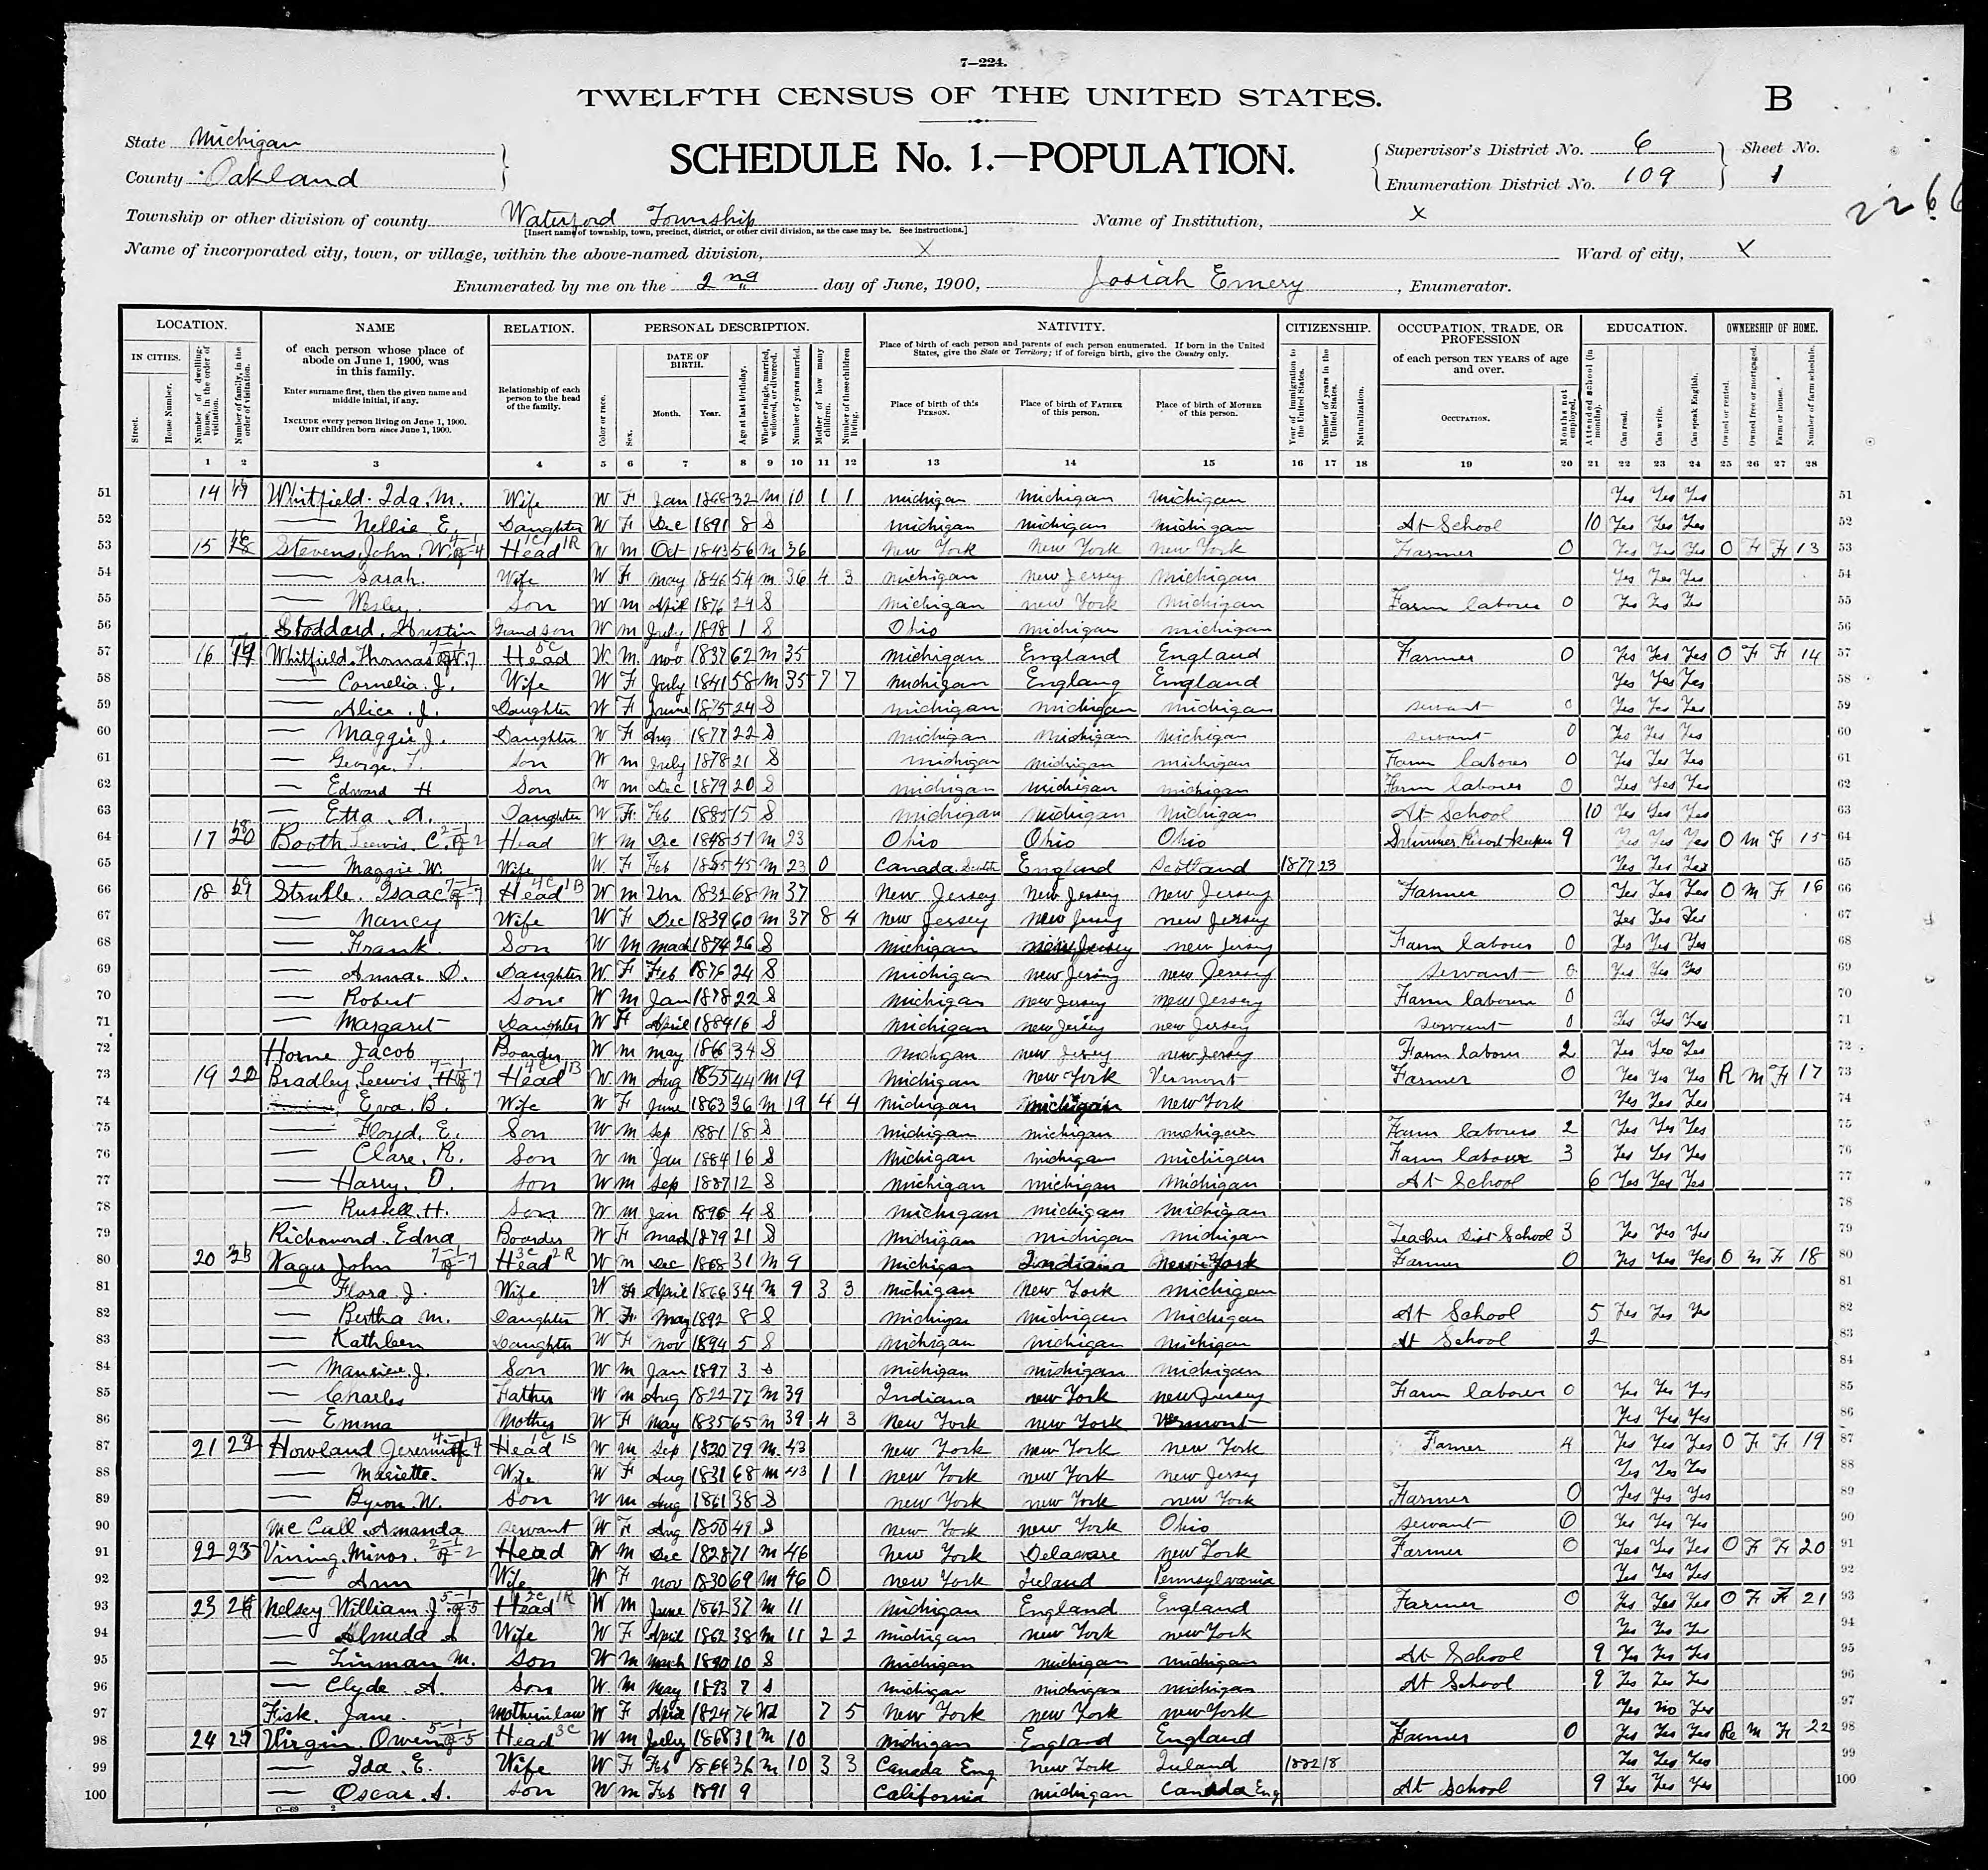 7—224.
TWELFTH CENSUS OF THE UNITED STATES.
B
State Michigan
County Oakland
SCHEDULE No. 1.—POPULATION.
Supervisor's District No. 6
Enumeration District No. 109
Sheet No. 1
2266
Township or other division of county Waterford Township
Name of Institution, X
[Insert name of township, town, precinct, district, or other civil division, as the case may be. See instructions.]
Name of incorporated city, town, or village, within the above-named division, X
Ward of city, X
Enumerated by me on the 2nd day of June, 1900, Josiah Emery, Enumerator.
LOCATION. NAME RELATION. PERSONAL DESCRIPTION. NATIVITY. CITIZENSHIP. OCCUPATION, TRADE, OR PROFESSION EDUCATION. OWNERSHIP OF HOME.
IN CITIES. Street. House Number. Number of dwelling-house, in the order of visitation. Number of family, in the order of visitation.
of each person whose place of abode on June 1, 1900, was in this family.
Enter surname first, then the given name and middle initial, if any.
INCLUDE every person living on June 1, 1900. OMIT children born since June 1, 1900.
Relationship of each person to the head of the family.
Color or race. Sex. DATE OF BIRTH. Month. Year. Age at last birthday. Whether single, married, widowed, or divorced. Number of years married. Mother of how many children. Number of these children living.
Place of birth of each person and parents of each person enumerated. If born in the United States, give the State or Territory; if of foreign birth, give the Country only.
Place of birth of this PERSON. Place of birth of FATHER of this person. Place of birth of MOTHER of this person.
Year of immigration to the United States. Number of years in the United States. Naturalization.
of each person TEN YEARS of age and over.
OCCUPATION. Months not employed.
Attended school (in months). Can read. Can write. Can speak English.
Owned or rented. Owned free or mortgaged. Farm or house. Number of farm schedule.
1 2 3 4 5 6 7 8 9 10 11 12 13 14 15 16 17 18 19 20 21 22 23 24 25 26 27 28
51 14 Whitfield Ida. M. Wife W F Jan 1868 32 M 10 1 1 Michigan Michigan Michigan Yes Yes Yes 51
52 — Nellie E. Daughter W F Dec 1891 8 S Michigan Michigan Michigan At School 10 Yes Yes Yes 52
53 15 Stevens John. W. Head W M Oct 1843 56 M 36 New York New York New York Farmer 0 Yes Yes Yes O F F 13 53
54 — Sarah. Wife W F May 1846 54 M 36 4 3 Michigan New Jersey Michigan Yes Yes Yes 54
55 — Wesley. Son W M April 1876 24 S Michigan New York Michigan Farm laborer 0 Yes Yes Yes 55
56 Stoddard. Austin Grandson W M July 1898 1 S Ohio Michigan Michigan 56
57 16 Whitfield Thomas Head W. M. Nov 1837 62 M 35 Michigan England England Farmer 0 Yes Yes Yes O F F 14 57
58 — Cornelia. J. Wife W F July 1841 58 M 35 7 7 Michigan Englang England Yes Yes Yes 58
59 — Alice. J. Daughter W F June 1875 24 S Michigan Michigan Michigan servant 0 Yes Yes Yes 59
60 — Maggie J. Daughter W F Aug 1877 22 S Michigan Michigan Michigan servant 0 Yes Yes Yes 60
61 — George. T. Son W M July 1878 21 S Michigan Michigan Michigan Farm laborer 0 Yes Yes Yes 61
62 — Edward H Son W M Dec 1879 20 S Michigan Michigan Michigan Farm laborer 0 Yes Yes Yes 62
63 — Etta. A. Daughter W F Feb 1885 15 S Michigan Michigan Michigan At School 10 Yes Yes Yes 63
64 17 Booth Leewis. C. Head W M Dec 1848 51 M 23 Ohio Ohio Ohio Summer Resort Keeper 9 Yes Yes Yes O M F 15 64
65 — Maggie. W. Wife W. F Feb 1855 45 M 23 0 Canada England Scotland 1877 23 Yes Yes Yes 65
66 18 Struble. Isaac Head W M 1832 68 M 37 New Jersey New Jersey New Jersey Farmer 0 Yes Yes Yes O M F 16 66
67 — Nancy Wife W F Dec 1839 60 M 37 8 4 New Jersey New Jersey New Jersey Yes Yes Yes 67
68 — Frank Son W M March 1874 26 S Michigan New Jersey New Jersey Farm laborer 0 Yes Yes Yes 68
69 — Anna. D. Daughter W. F Feb 1876 24 S Michigan New Jersey New Jersey servant 0 Yes Yes Yes 69
70 — Robert Son W M Jan 1878 22 S Michigan New Jersey New Jersey Farm laborer 0 70
71 — Margaret Daughter W F April 1884 16 S Michigan New Jersey New Jersey servant 0 Yes Yes Yes 71
72 Horne Jacob Boarder W M May 1866 34 S Michigan New Jersey New Jersey Farm labour 2 Yes Yes Yes 72
73 19 22 Bradley Leewis. H. Head W. M Aug 1855 44 M 19 Michigan New York Vermont Farmer 0 Yes Yes Yes R M F 17 73
74 Eva. B. Wife W F June 1863 36 M 19 4 4 Michigan Michigan New York Yes Yes Yes 74
75 — Floyd. E. Son W M Sep 1881 18 S Michigan Michigan Michigan Farm laborer 2 Yes Yes Yes 75
76 — Clare. R. Son W M Jan 1884 16 S Michigan Michigan Michigan Farm laborer 3 Yes Yes Yes 76
77 — Harry. O. Son W M Sep 1887 12 S Michigan Michigan Michigan At School 6 Yes Yes Yes 77
78 — Russell. H. Son W M Jan 1896 4 S Michigan Michigan Michigan 78
79 Richmond. Edna Boarder W F March 1879 21 S Michigan Michigan Michigan Teacher Dist School 3 Yes Yes Yes 79
80 20 Wager John Head W M Dec 1868 31 M 9 Michigan Indiana New York Farmer 0 Yes Yes Yes O M F 18 80
81 — Flora. J. Wife W F April 1866 34 M 9 3 3 Michigan New York Michigan 81
82 — Bertha M. Daughter W F May 1892 8 S Michigan Michigan Michigan At School 5 Yes Yes Yes 82
83 — Kathleen Daughter W F Nov 1894 5 S Michigan Michigan Michigan At School 2 83
84 — Maurice. J. Son W M Jan 1897 3 S Michigan Michigan Michigan 84
85 — Charles Father W M Aug 1822 77 M 39 Indiana New York New Jersey Farm laborer 0 Yes Yes Yes 85
86 — Emma Mother W F May 1835 65 M 39 4 3 New York New York Vermont Yes Yes Yes 86
87 21 Howland Jeremiah Head W M Sep 1820 79 M. 43 New York New York New York Farmer 4 Yes Yes Yes O F F 19 87
88 — Mariette. Wife W F Aug 1831 68 M 43 1 1 New York New York New Jersey Yes Yes Yes 88
89 — Byron. W. Son W M Aug 1861 38 S New York New York New York Farmer 0 Yes Yes Yes 89
90 Mc Call Amanda servant W F Aug 1850 49 S New York New York Ohio servant 0 Yes Yes Yes 90
91 22 25 Vining. Minor. Head W M Dec 1828 71 M 46 New York Delaware New York Farmer 0 Yes Yes Yes O F F 20 91
92 — Ann Wife W F Nov 1830 69 M 46 0 New York Ireland Pennsylvania Yes Yes Yes 92
93 23 Nelsey William J Head W M June 1862 37 M 11 Michigan England England Farmer 0 Yes Yes Yes O F F 21 93
94 — Almeda A Wife W F April 1862 38 M 11 2 2 Michigan New York New York Yes Yes Yes 94
95 — M. Son W M March 1890 10 S Michigan Michigan Michigan At School 9 Yes Yes Yes 95
96 — Clyde. A. Son W. M May 1893 7 S Michigan Michigan Michigan At School 9 Yes Yes Yes 96
97 Fisk. Jane. Mother in law W F April 1824 76 Wd 7 5 New York New York New York Yes No Yes 97
98 24 Virgin. Owen Head W M July 1868 31 M 10 Michigan England England Farmer 0 Yes Yes Yes Re M F 22 98
99 — Ida. E. Wife W F Feb 1864 36 M 10 3 3 Canada Eng New York Ireland 1882 18 Yes Yes Yes 99
100 — Oscar. S. Son W M Feb 1891 9 California Michigan Canada Eng At School 9 Yes Yes Yes 100
C—69 2